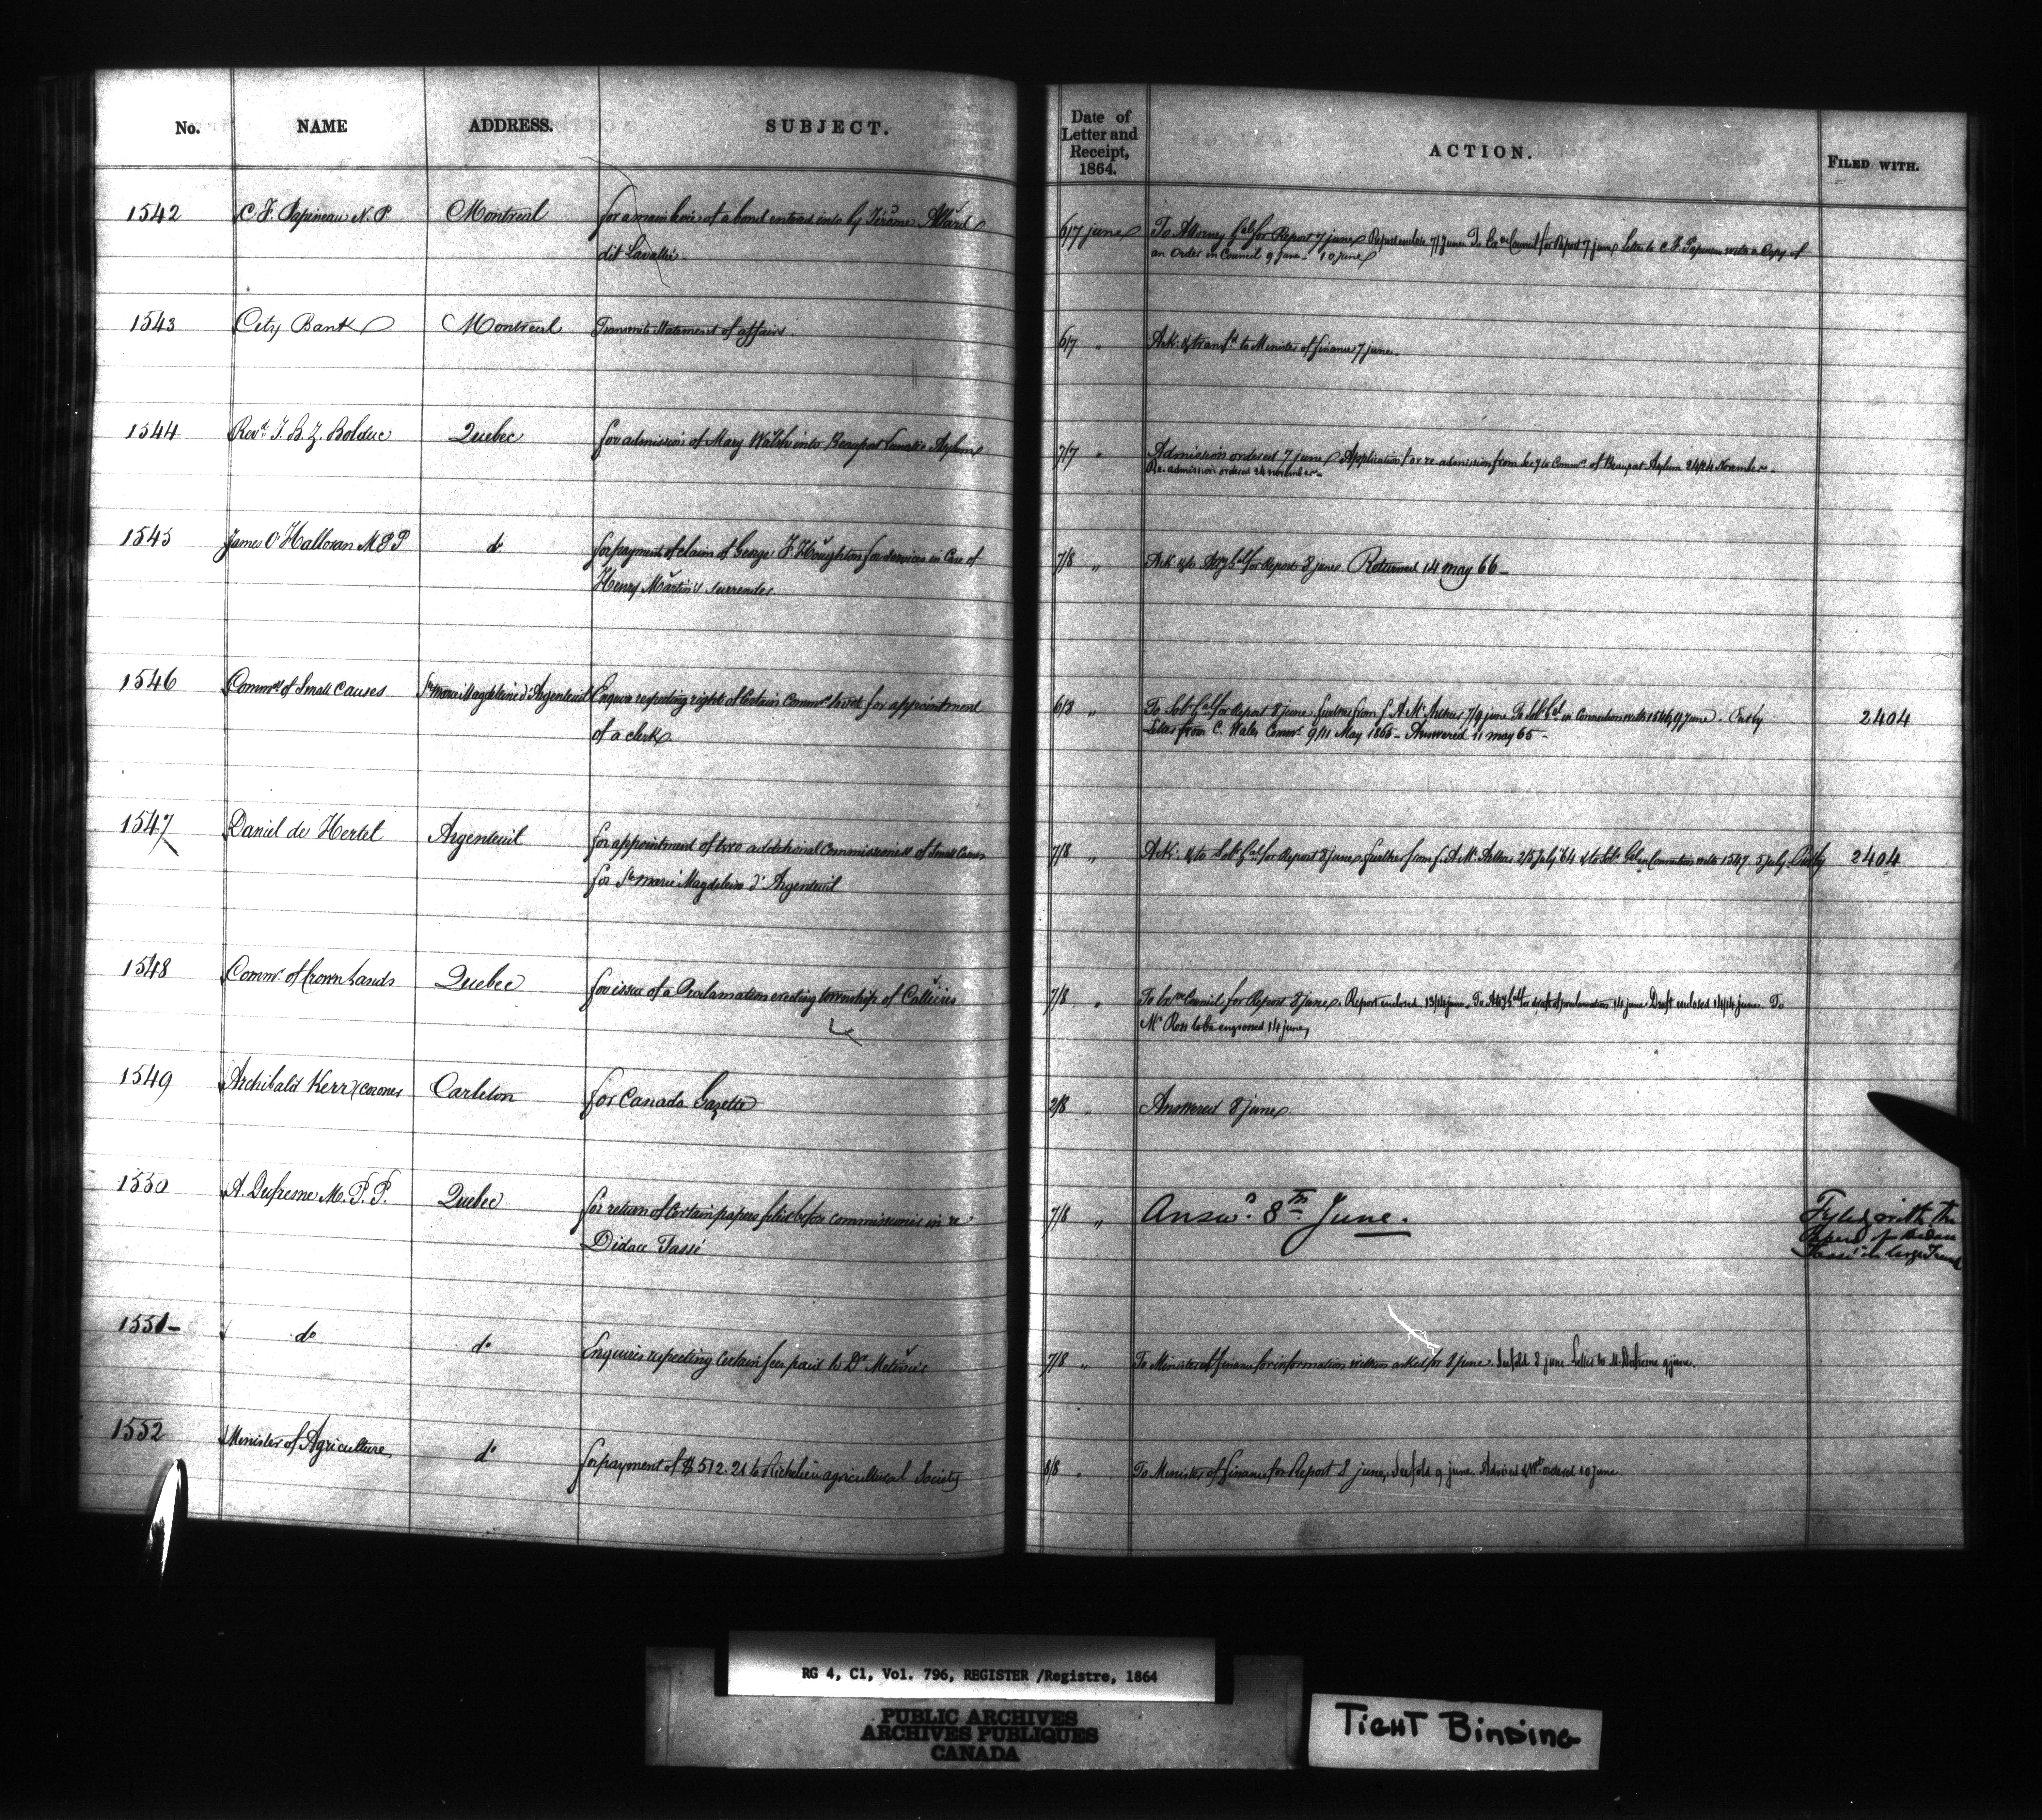 No. NAME ADDRESS. SUBJECT. Date of Letter and Receipt, 1864. ACTION. FILED WITH.
1542 C. F. Papineau N. P. Montreal for a main levée of a bond entered into by Jérôme Allard
dit Lavallée
6/7 june To Attorney Gal for Report 7 june Report enclose 7/7 june To Exve Council for Report 7 june Letter to C. F. Papineau with a Copy of
an Order in Council 9 june 10 june
1543 City Bank Montreal Transmits Statement of affairs.
6/7 " Ack. & transfd to Minister of finance 7 june.
1544 Revd. J. B. Z. Bolduc Quebec for admission of Mary Walsh into Beauport Lunatic Asylum
7/7 " Admission ordered 7 june Application for re-admission from Secy to Commrs of Beauport Asylum 24/24 November
Re-admission ordered 24 november
1545 James O'Halloran M P P do for payment of claim of George F. Houghton for services in Case of
Henry Martin's surrender.
7/8 " Ack & to Atty Gal for Report 8 june Returned 14 may 66 –
1546 Commrs of Small Causes Ste Marie Magdeleine d'Argenteuil Enquire respecting right of Certain Commrs to vote for appointment
of a clerk
6/8 " To Solr Gal for Report 8 june. further from J. A. McArthur 7/9 june To Solr Gal in Connection with 1546 9 june.
Letter from C. Wales Commr 9/11 May 1865 – Answered 11 may 65 –
2404
1547 Daniel de Hertel Argenteuil for appointment of two additional Commissioners of Small Causes
for Ste Marie Magdeleine d'Argenteuil
7/8 " Ack. & to Solr Gal for Report 8 june further from J. A. McArthur 2/5 july 64 & to Solr Gal in Connection with 1547 5 july
2404
1548 Commr of Crown Lands Quebec for issue of a Proclamation erecting township of Callières
7/8 " To Exve Council for Report 8 june. Report enclosed 13/14 june. To Atty Gal for draft of proclamation 14 june Draft enclosed 14/14 june To
Mr Ross to be engrossed 14 june
1549 Archibald Kerr (coroner Carleton for Canada Gazette
2/8 " Answered 8 june
1550 A. Dufresne M. P. P. Quebec for return of Certain papers filed before commissioner in re
Didace Tassé
7/8 " Answd. 8th June.
Fyled with the
papers of Didace
Tassé in large Trunk
1551– do do Enquires respecting Certain fees paid to Dr
7/8 " To Minister of finance for information within asked for 8 june. 8 june Letter to M. Dufresne 9 june.
1552 Minister of Agriculture do for payment of $ 512.21 to Richelieu agricultural Society
8/8 " To Minister of finance for Report 8 june. 9 june Advised & Wrt ordered 10 june.
RG 4, C1, Vol. 796, REGISTER /Registre, 1864
PUBLIC ARCHIVES
ARCHIVES PUBLIQUES
CANADA
TIGHT BINDING